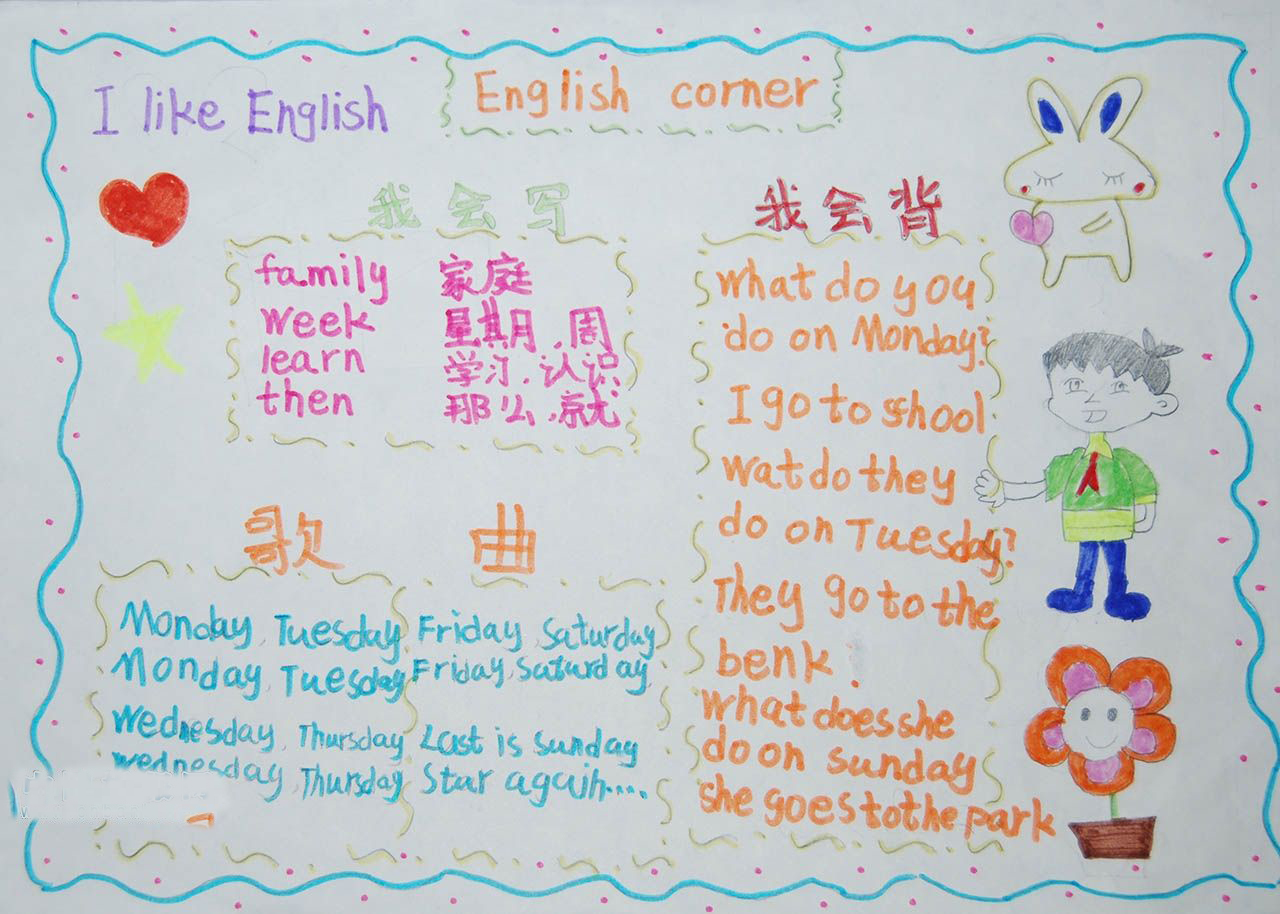 I like English
English corner
我会写
family 家庭
week 星期,周
learn 学习,认识
then 那么,就
我会背
what do you
do on Monday?
I go to school
wat do they
do on Tuesday?
They go to the
benk.
what does she
do on sunday
she goes to the park
歌曲
Monday, Tuesday, Friday, Saturday,
Monday, Tuesday, Friday, Saturday,
Wednesday, Thursday Last is sunday
wednesday, Thursday Star again.....